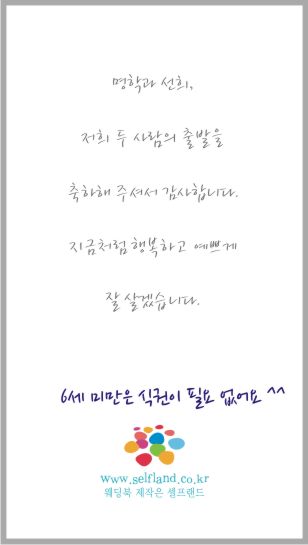 명학과 선희,
저희 두 사람의 출발을
축하해 주셔서 감사합니다.
지금처럼 행복하고 예쁘게
잘 살겠습니다.
6세 미만은 식권이 필요 없어요 ^^
www.selfland.co.kr
웨딩북 제작은 셀프랜드